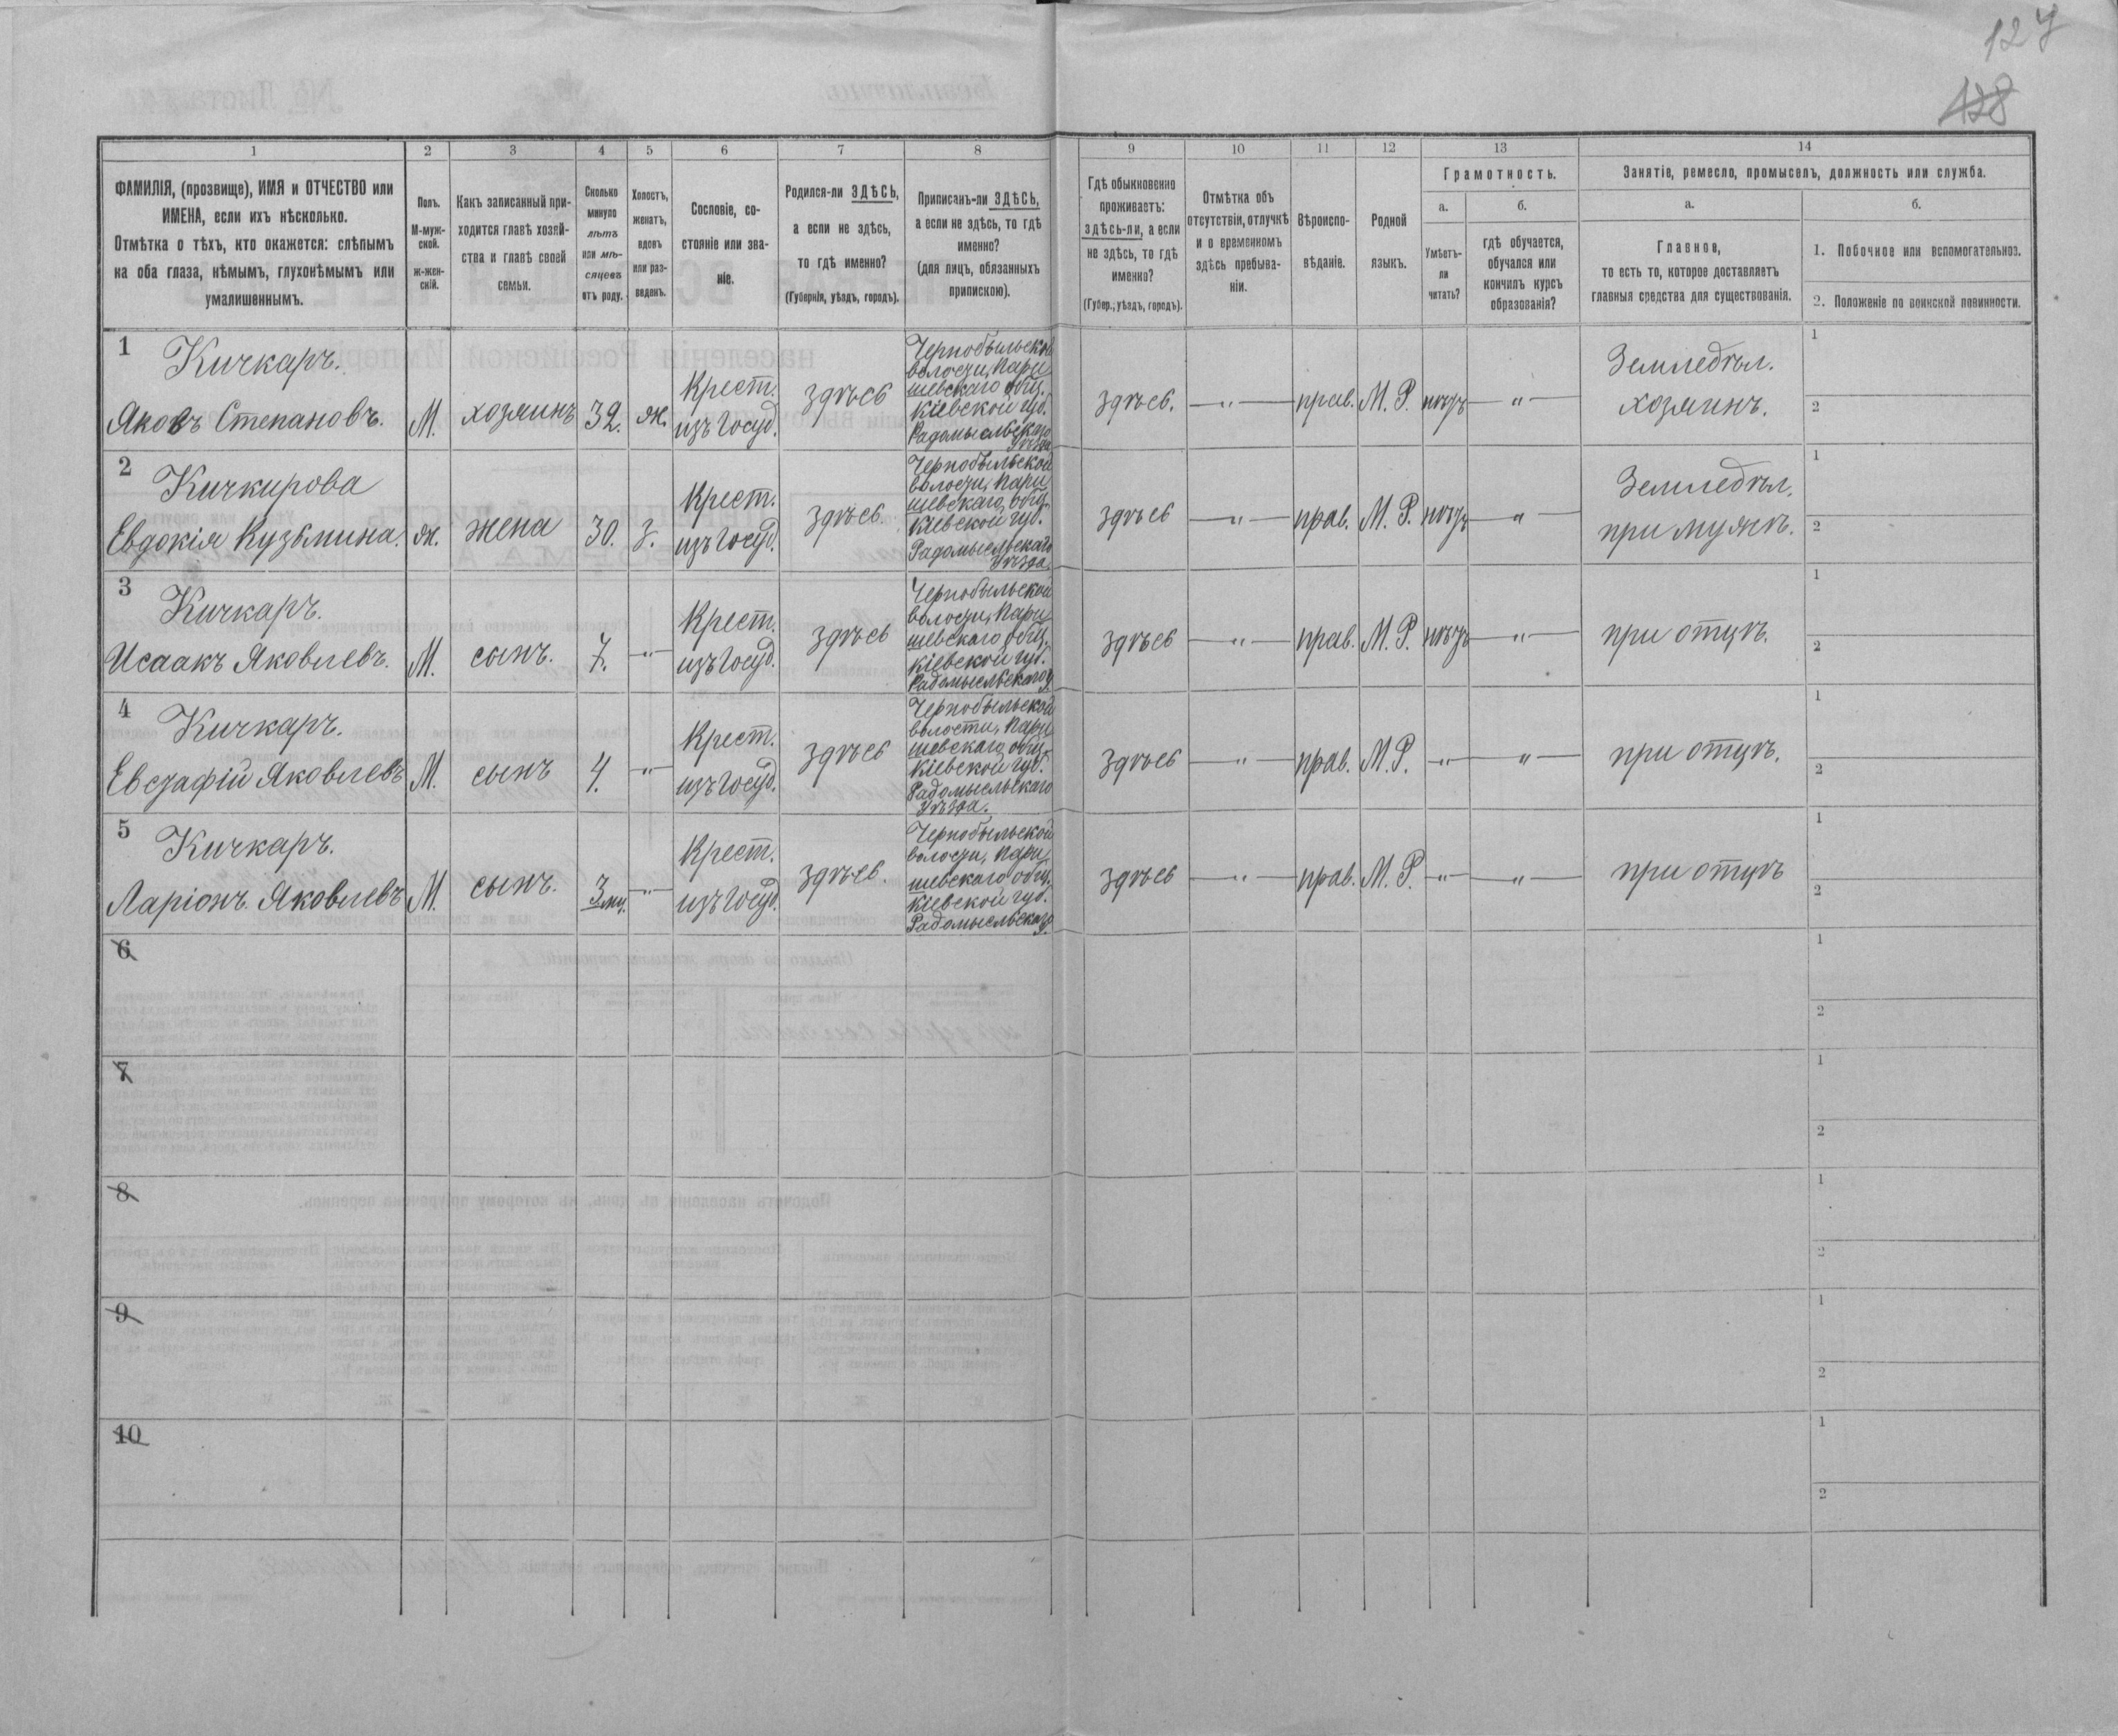 127
128
1
2
3
4
5
6
7
8
9
10
11
12
13
14
ФАМИЛІЯ, (прозвище), ИМЯ и ОТЧЕСТВО или
ИМЕНА, если ихъ нѣсколько.
Отмѣтка о тѣхъ, кто окажется: слѣпымъ
на оба глаза, нѣмымъ, глухонѣмымъ или
умалишеннымъ.
Полъ.
М-муж-
ской.
ж-жен-
скій.
Какъ записанный при-
ходится главѣ хозяй-
ства и главѣ своей
семьи.
Сколько
минуло
лѣтъ
или мѣ-
сяцевъ
отъ роду.
Холостъ,
женатъ,
вдовъ
или раз-
веденъ.
Сословіе, со-
стояніе или зва-
ніе.
Родился-ли ЗДѢСЬ,
а если не здѣсь,
то гдѣ именно?
(Губернія, уѣздъ, городъ).
Приписанъ-ли ЗДѢСЬ,
а если не здѣсь, то гдѣ
именно?
(для лицъ, обязанныхъ
припискою).
Гдѣ обыкновенно
проживаетъ:
здѣсь-ли, а если
не здѣсь, то гдѣ
именно?
(Губер., уѣздъ, городъ).
Отмѣтка объ
отсутствіи, отлучкѣ
и о временномъ
здѣсь пребыва-
ніи.
Вѣроиспо-
вѣданіе.
Родной
языкъ.
Грамотность.
а.
Умѣетъ-
ли
читать?
б.
гдѣ обучается,
обучался или
кончилъ курсъ
образованія?
Занятіе, ремесло, промыселъ, должность или служба.
а.
Главное,
то есть то, которое доставляетъ
главныя средства для существованія.
б.
1. Побочное или вспомогательное.
2. Положеніе по воинской повинности.
1
Кичкаръ.
Яковъ Степановъ.
М.
хозяинъ
32.
ж.
Крест.
изъ госуд.
здѣсь
Чернобыльской
волости, Пари
шевскаго общ.
Кіевской губ.
Радомысльскаго
уѣзда
здѣсь.
— " —
прав.
М. Р.
нѣтъ
— " —
Земледѣл.
хозяинъ.
1
2
2
Кичкирова
Евдокія Кузьмина.
ж.
жена
30.
з.
Крест.
изъ госуд.
здѣсь.
Чернобыльской
волости, Пари
шевскаго общ.
Кіевской губ.
Радомысльскаго
уѣзда.
здѣсь
— " —
прав.
М. Р.
нѣтъ
— " —
Земледѣл.
при мужѣ.
1
2
3
Кичкаръ.
Исаакъ Яковлевъ.
М.
сынъ.
7.
— " —
Крест.
изъ госуд.
здѣсь
Чернобыльской
волости, Пари
шевскаго общ.
Кіевской губ.
Радомысльскаго у.
здѣсь
— " —
прав.
М. Р.
нѣтъ
— " —
при отцѣ.
1
2
4
Кичкаръ.
Евстафій Яковлевъ
М.
сынъ
4.
— " —
Крест.
изъ госуд.
здѣсь
Чернобыльской
волости, Пари
шевскаго общ.
Кіевской губ.
Радомысльскаго
уѣзда.
здѣсь
— " —
прав.
М. Р.
— " —
— " —
при отцѣ.
1
2
5
Кичкаръ.
Ларіонъ Яковлевъ
М.
сынъ.
3 мц.
— " —
Крест.
изъ госуд.
здѣсь.
Чернобыльской
волости, Пари
шевскаго общ.
Кіевской губ.
Радомысльскаго
у.
здѣсь
— " —
прав.
М. Р.
— " —
— " —
при отцѣ
1
2
6
1
2
7
1
2
8
1
2
9
1
2
10
1
2